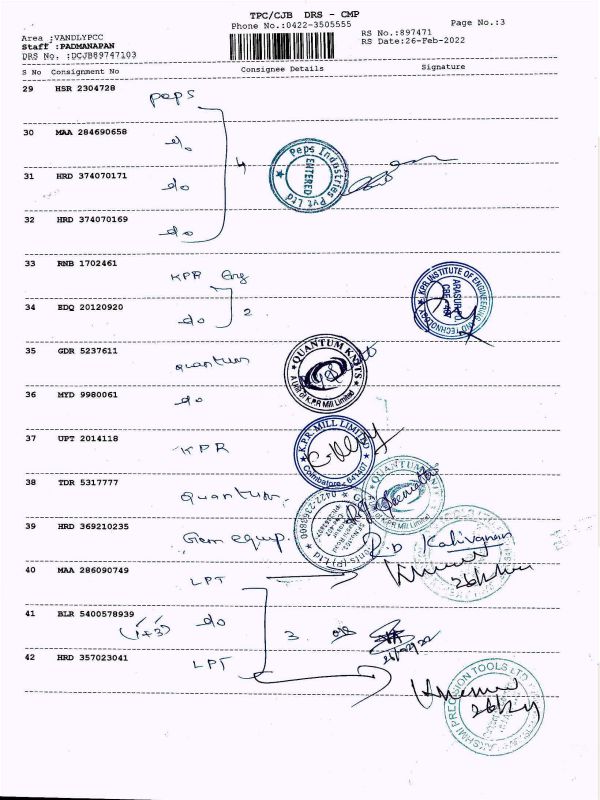 TPC/CJB DRS - CMP
Phone No.:0422-3505555
Page No.:3
Area :VANDLYPCC
Staff :PADMANAPAN
DRS No. :DCJB89747103
RS No.:897471
RS Date:26-Feb-2022
S No Consignment No Consignee Details Signature
29 HSR 2304728 peps
30 MAA 284690658 do
31 HRD 374070171 do
32 HRD 374070169 do
4
Peps Industries Pvt Ltd
ENTERED
33 RNB 1702461 KPR Eng
34 EDQ 20120920 do 2
KPR INSTITUTE OF ENGINEERING AND TECHNOLOGY
ARASUR
35 GDR 5237611 quantum
QUANTUM KNITS
A Unit of K.P.R Mill Limited
36 MYD 9980061 do
37 UPT 2014118 KPR
K.P.R. MILL LIMITED
Coimbatore - 641407
38 TDR 5317777 Quantum
QUANTUM KNIT
K.P.R Mill Limited
39 HRD 369210235 Gem equip.
0422-2363800
40 MAA 286090749 LPT
41 BLR 5400578939 do
(1+3)
3
42 HRD 357023041 LPT
LAKSHMI PRECISION TOOLS